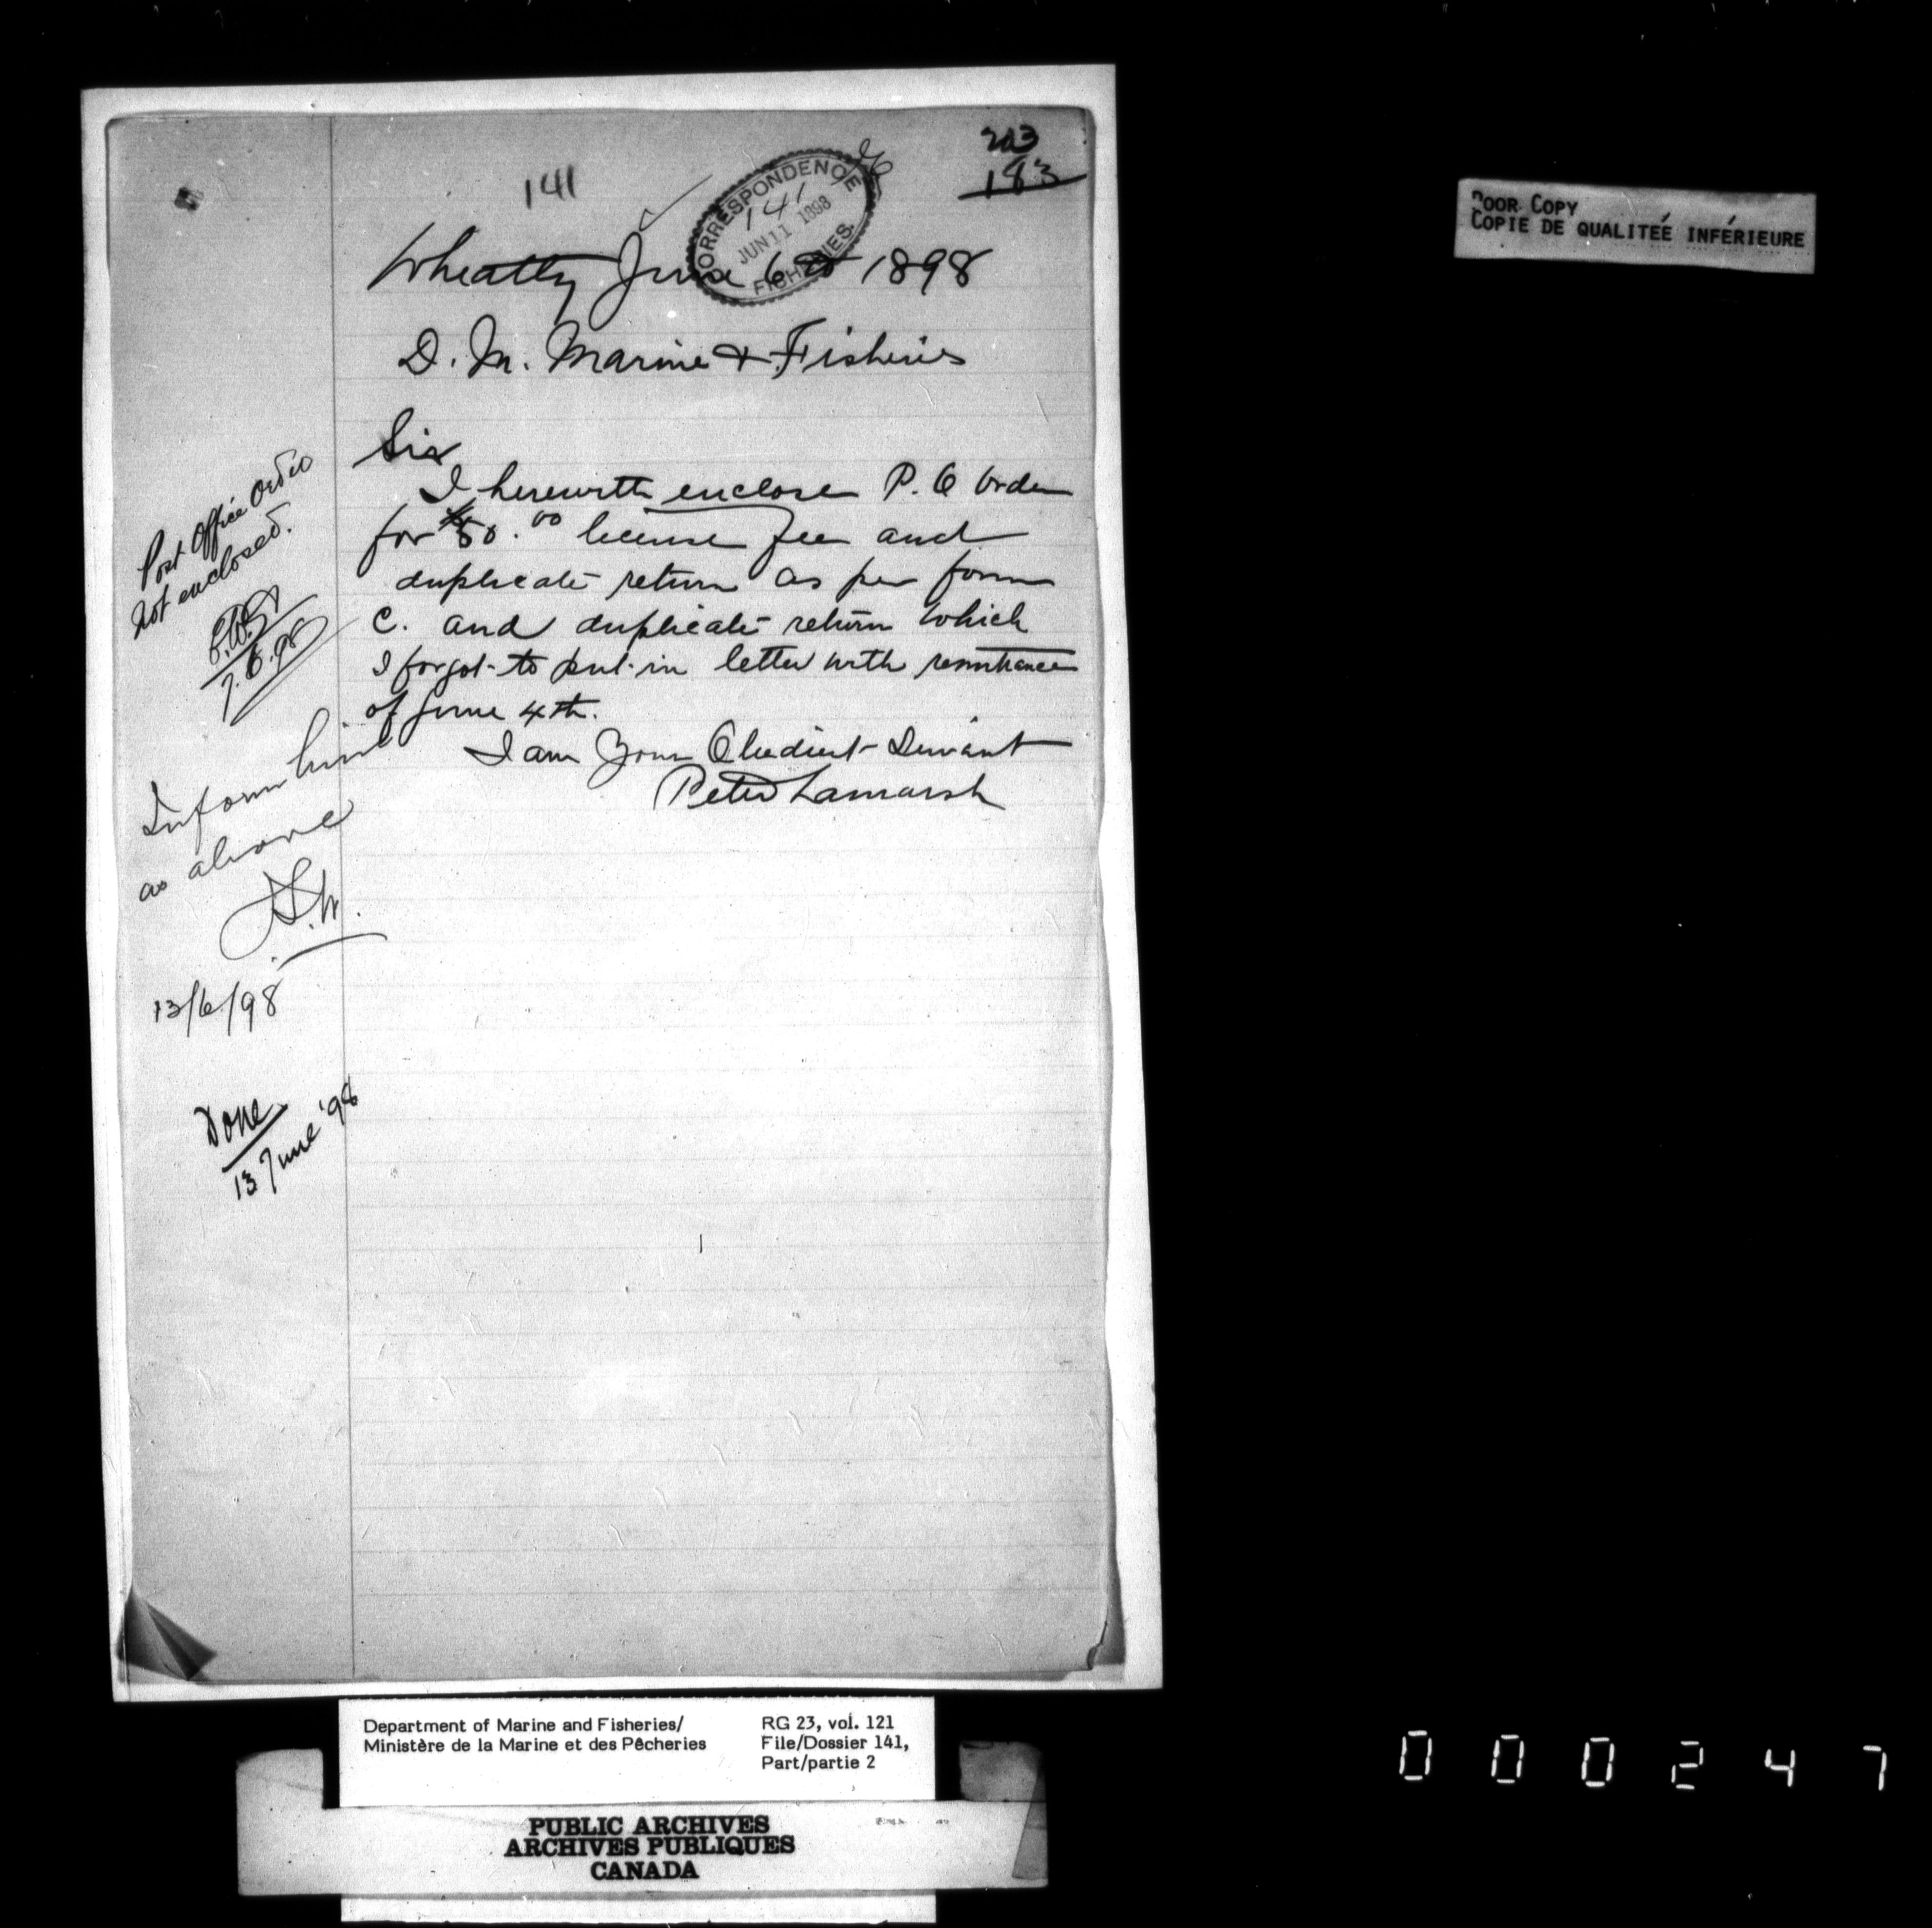 203
183
141
CORRESPONDENCE
141
JUN 11 1898
FISHERIES.
Wheatly June 6th 1898
D. M. Marine & Fisheries
Sir
I herewith enclose P. O Order
for $50.00 license fee and
duplicate return as per form
C. and duplicate return which
I forgot to put in letter with remittance
of June 4th.
I am Your Obedient Servant
Peter Lamarsh
Post Office Order
not enclosed.
Inform him
as above
13/6/98
Done
13 June '98
POOR COPY
COPIE DE QUALITEÉ INFÉRIEURE
Department of Marine and Fisheries/
Ministère de la Marine et des Pêcheries
RG 23, vol. 121
File/Dossier 141,
Part/partie 2
PUBLIC ARCHIVES
ARCHIVES PUBLIQUES
CANADA
000247